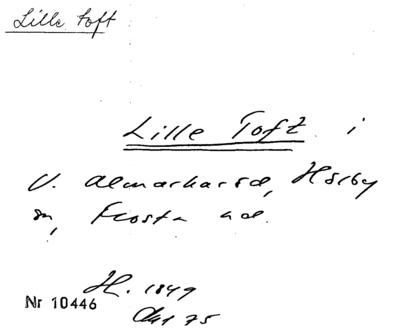 Lille toft
Lille Toft i
V. Almarkaröd, Hörby
sn, Frosta hd.
H. 1849
Nr 10446
Akt 75